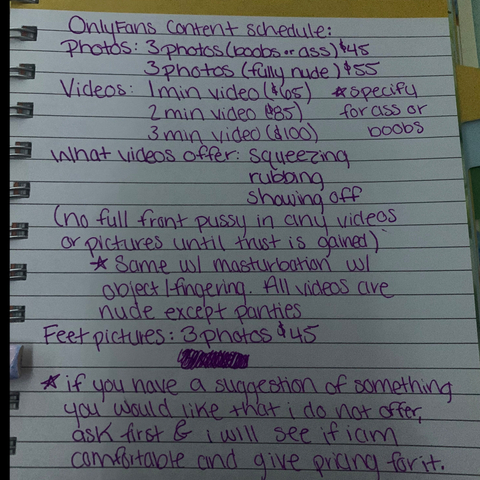 OnlyFans Content schedule:
Photos: 3 photos (boobs or ass) $45
3 photos (fully nude) $55
Videos: 1 min video ($65) ★ specify
2 min video ($85) for ass or
3 min video ($100) boobs
What videos offer: squeezing
rubbing
showing off
(no full front pussy in any videos
or pictures until trust is gained)
★ Same w/ masturbation w/
object/-fingering. All videos are
nude except panties
Feet pictures: 3 photos $45
★ if you have a suggestion of something
you would like that i do not offer,
ask first & i will see if i am
comfortable and give pricing for it.